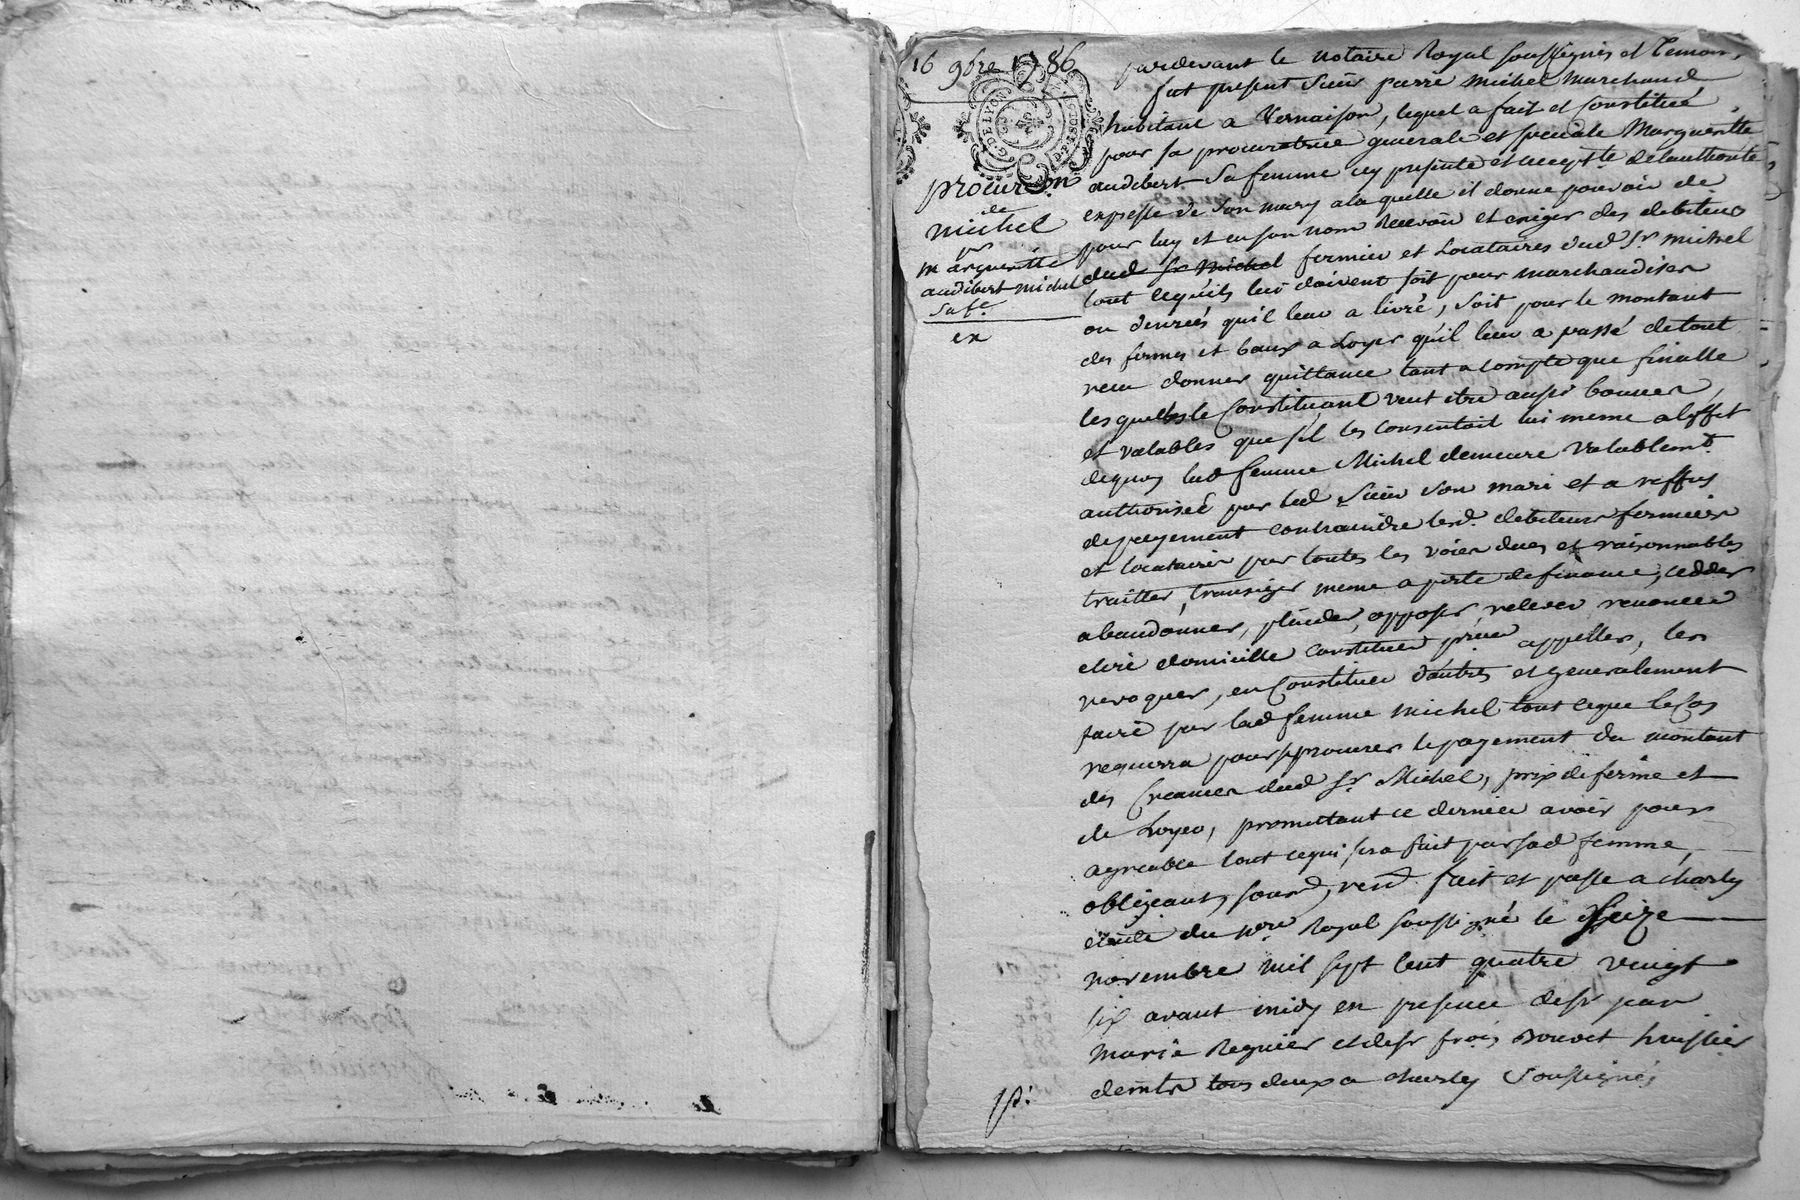 16 9bre 1786
G. DE LYON
procur.on
de
michel
pr
margueritte
audibert michel
sa fe.
ex
pardevant le notaire Royal soussignés et temoins
fut present Sieur pierre michel marchand
habitant a Vernaison, lequel a fait et Constitué
pour sa procuratrice generale et speciale Margueritte
audibert sa femme cy presente et accepte. de lauthorité
expresse de son mary a la quelle il donne pouvoir de
pour luy et en son nom Recevoir et exiger des debiteurs
dud sr Michel fermier et Locataires dud Sr. michel
tout cequ'ils lui doivent soit pour marchandises
ou denreés quil leur a livré, soit pour le montant
des fermes et baux a Loyer qu'il leur a passé detout
recu donner quittance tant a compte que finalle
lesquelles le Constituant veut etre aussi bonnes
et valables que s'il les consentait lui meme a leffet
dequoy lad femme Michel demeure valablemt.
authorisée par led Sieur son mari et a reffus
depayement contraindre lesd. debiteurs fermiers
et locataires par toutes les voies dues et raisonnables
traitter, transiger meme a perte definance, cedder
abandonner, plaider, opposer, relever renoncer
elire domicille constituer procur appeller, les
revoquer, en Constituer d'autres et generalement
faire par lad femme michel tout ceque le cas
requerra pour se procurer lepayement du montant
des Creances dud Sr. Michel, prix de ferme et
de Loyer, promettant ce dernier avoir pour
agreable tout cequi sera fait par sad femme,
obligeant, soumd, rend. fait et passé a charly
etude du nore Royal soussigné le seize
novembre mil sept cent quatre vingt
six avant midy en presence de sr jean
marie Regnier et de sr frois Bouvet huissier
demts tous deux a charly soussignés